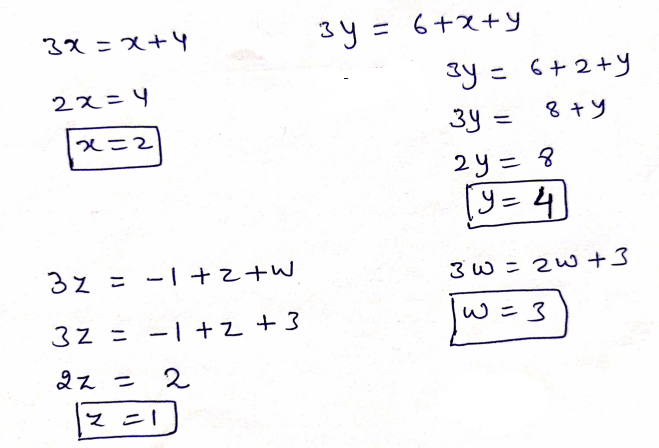 3x = x+4
2x = 4
x = 2
3y = 6+x+y
3y = 6+2+y
3y = 8+y
2y = 8
y = 4
3z = -1+z+w
3z = -1+z+3
2z = 2
z = 1
3w = 2w+3
w = 3